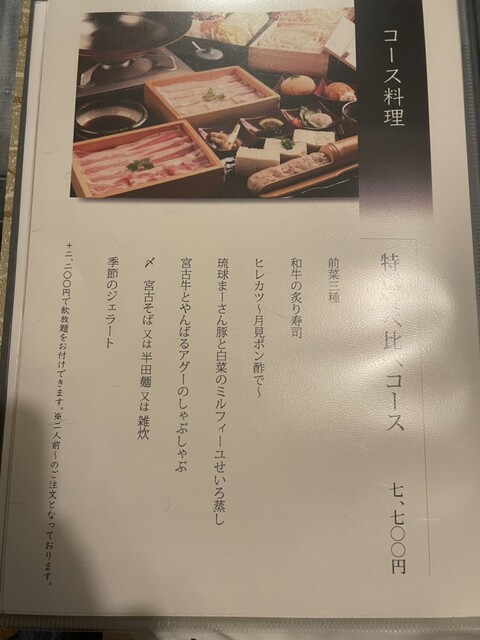 コース料理
特 比、コース 七、七〇〇円
前菜三種
和牛の炙り寿司
ヒレカツ～月見ポン酢で～
琉球まーさん豚と白菜のミルフィーユせいろ蒸し
宮古牛とやんばるアグーのしゃぶしゃぶ
〆 宮古そば 又は 半田麺 又は 雑炊
季節のジェラート
+二、二〇〇円で飲放題をお付けできます。※二人前～のご注文となっております。